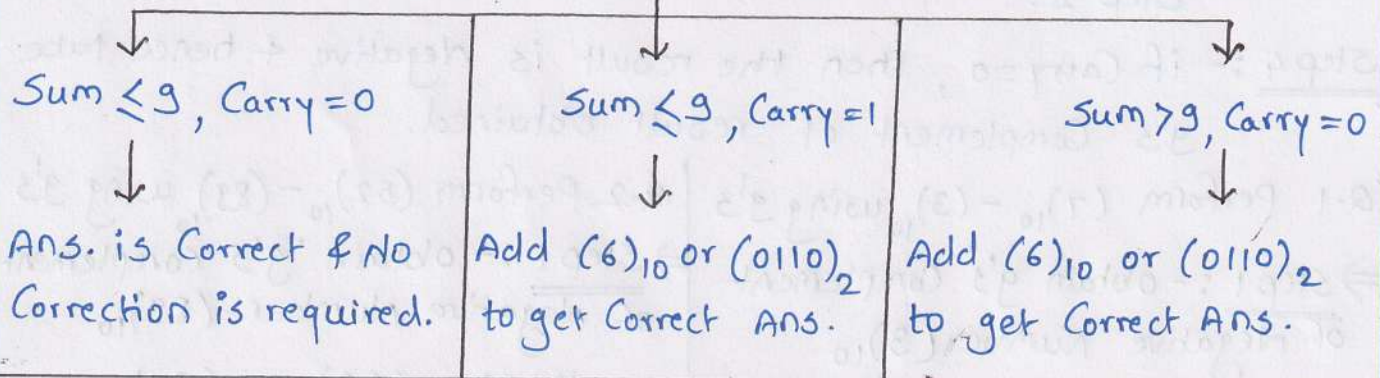 Sum ≤ 9, Carry = 0
Ans. is Correct & No
Correction is required.
Sum ≤ 9, Carry = 1
Add (6)₁₀ or (0110)₂
to get Correct Ans.
Sum > 9, Carry = 0
Add (6)₁₀ or (0110)₂
to get Correct Ans.